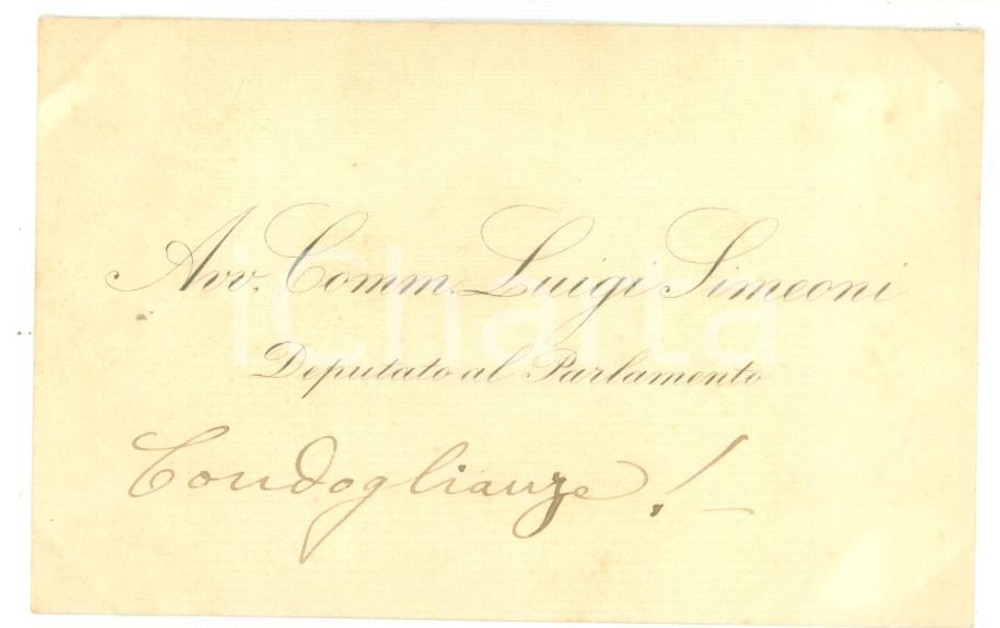 Avv. Comm. Luigi Simeoni
iCharta
Deputato al Parlamento
Condoglianze! —